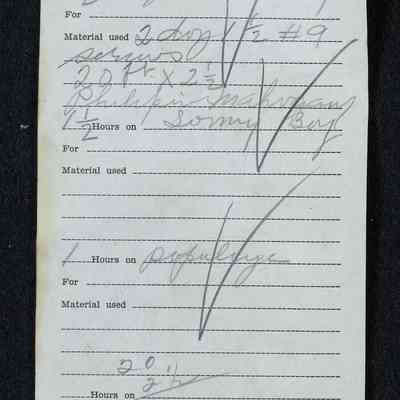 For
Material used 2 doz 1 1/2 #9
screws
20 ft x 2 1/2
Philipin Mahogany
1 1/2 Hours on Sonny Boy
For
Material used
1 Hours on
For
Material used
20
2 1/2
Hours on